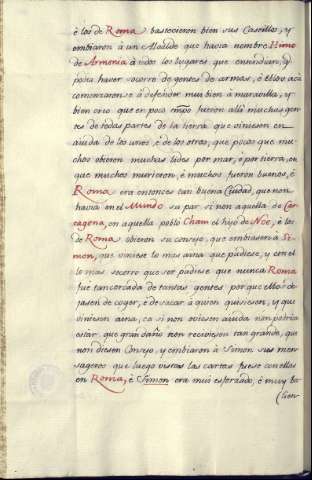 é los de Roma bastecieron bien sus Castillos, y
embiaron á un Alcalde que havia nombre Nimo
de Armonia á todos los lugares que entendian, q.
podia haver socorro de gentes de armas, é ellos acá
comenzaronse á defender mui bien á maravilla, y
bien creo que en poco tpõ fueron alli muchas gen
tes de todas partes de la tierra que viniesen en
aiuda de los unos, é de los otros, que pocos que mu
chos obieron muchas lides por mar, é por tierra, en
que muchos murieron, é muchos fueron buenos, é
Roma era entonces tan buena Ciudad, que non
havia en el Mundo su par si non aquella de Car
tagena, en aquella poblo Cham el hijo de Noé, é los
de Roma obieron su consejo, que embiasen á Si
mon, que viniese lo mas aina que pudiese, y con el
lo mas socorro que ser pudiese que nunca Roma
fue tan cercada de tantas gentes por que ellos de
jasen de coger, é de sacar á quien quisiesen, y que
viniesen aina, ca si non oviesen aiuda non podria
estar, que gran daño non reciviesen tan grande, que
non diesen Consejo, y embiaron á Simon sus men
sageros que luego vistas las cartas fuese con ellos
en Roma, é Simon era mui esforzado, é muy ba
(lien